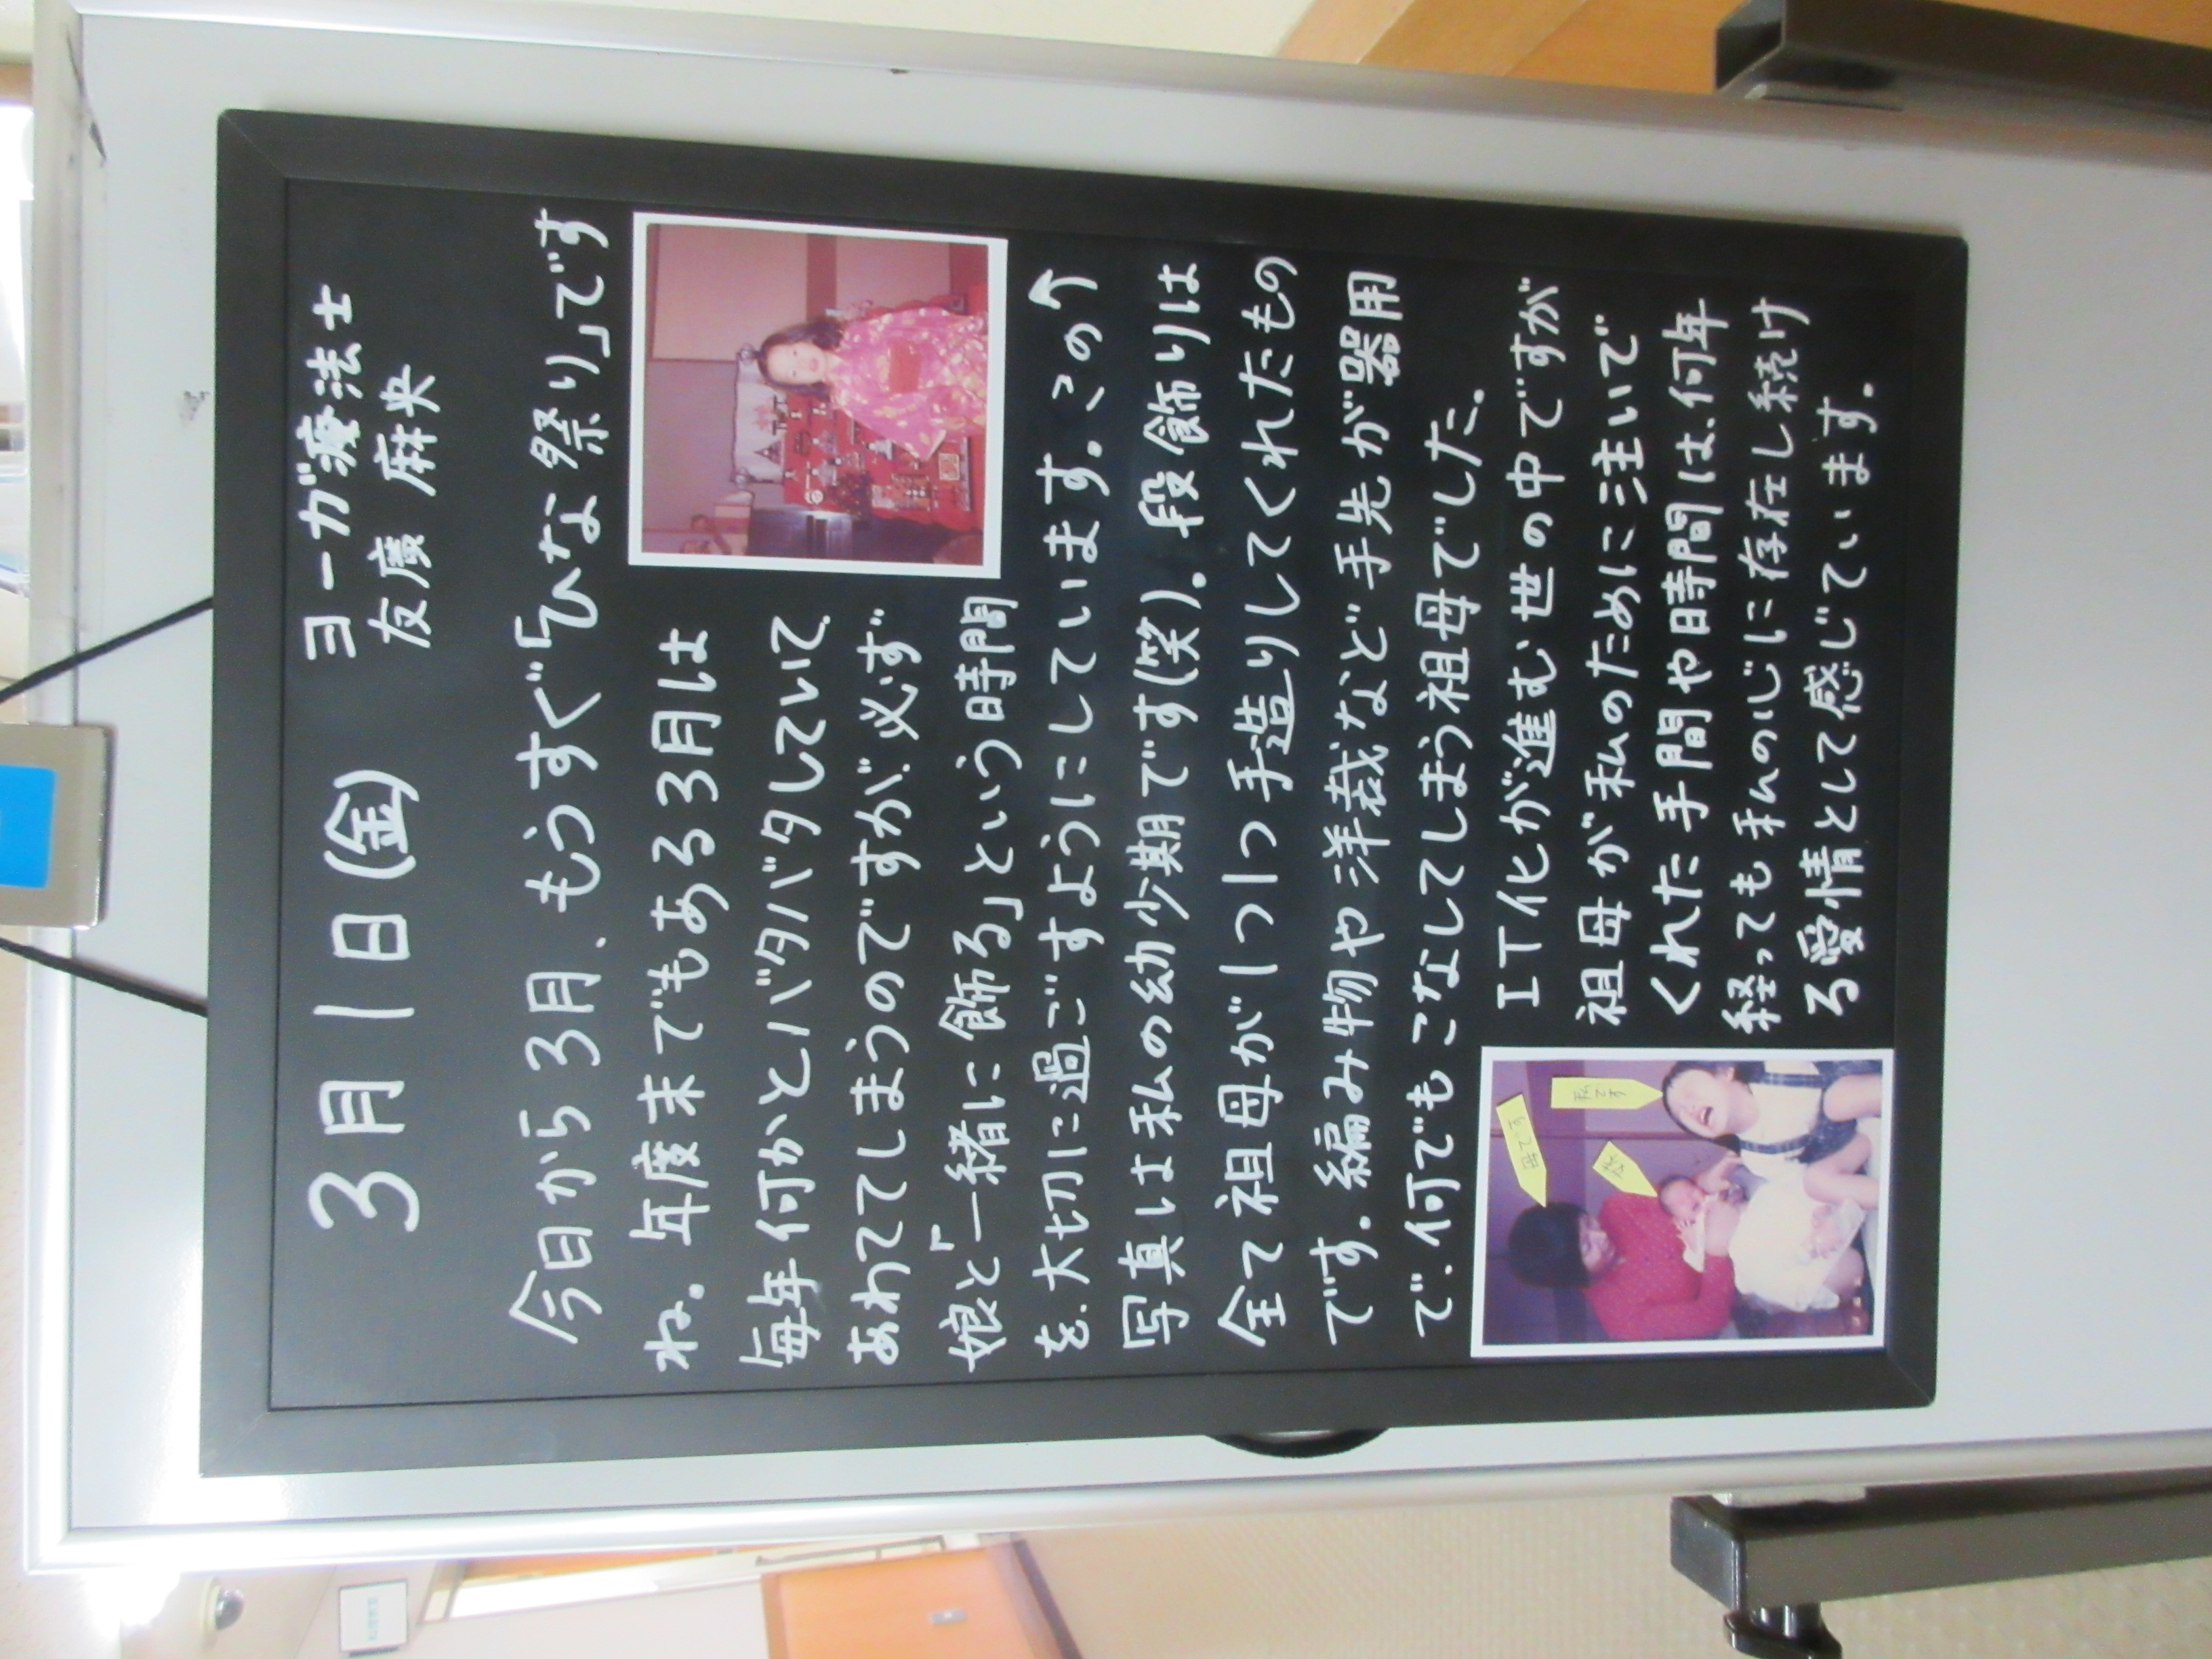 3月1日(金)
ヨーガ療法士
友廣 麻央
今日から3月、もうすぐ「ひな祭り」です
ね。年度末でもある3月は
毎年何かとバタバタしていて
あわててしまうのですが、必ず
娘と「一緒に飾る」という時間
を、大切に過ごすようにしています。この↑
写真は私の幼少期です(笑)。段飾りは
全て祖母が1つ1つ手造りしてくれたもの
です。編み物や洋裁など手先が器用
で、何でもこなしてしまう祖母でした。
IT化が進む世の中ですが
祖母が私のために注いで
くれた手間や時間は、何年
経っても私の心に存在し続け
る愛情として感じています。
母です
私です